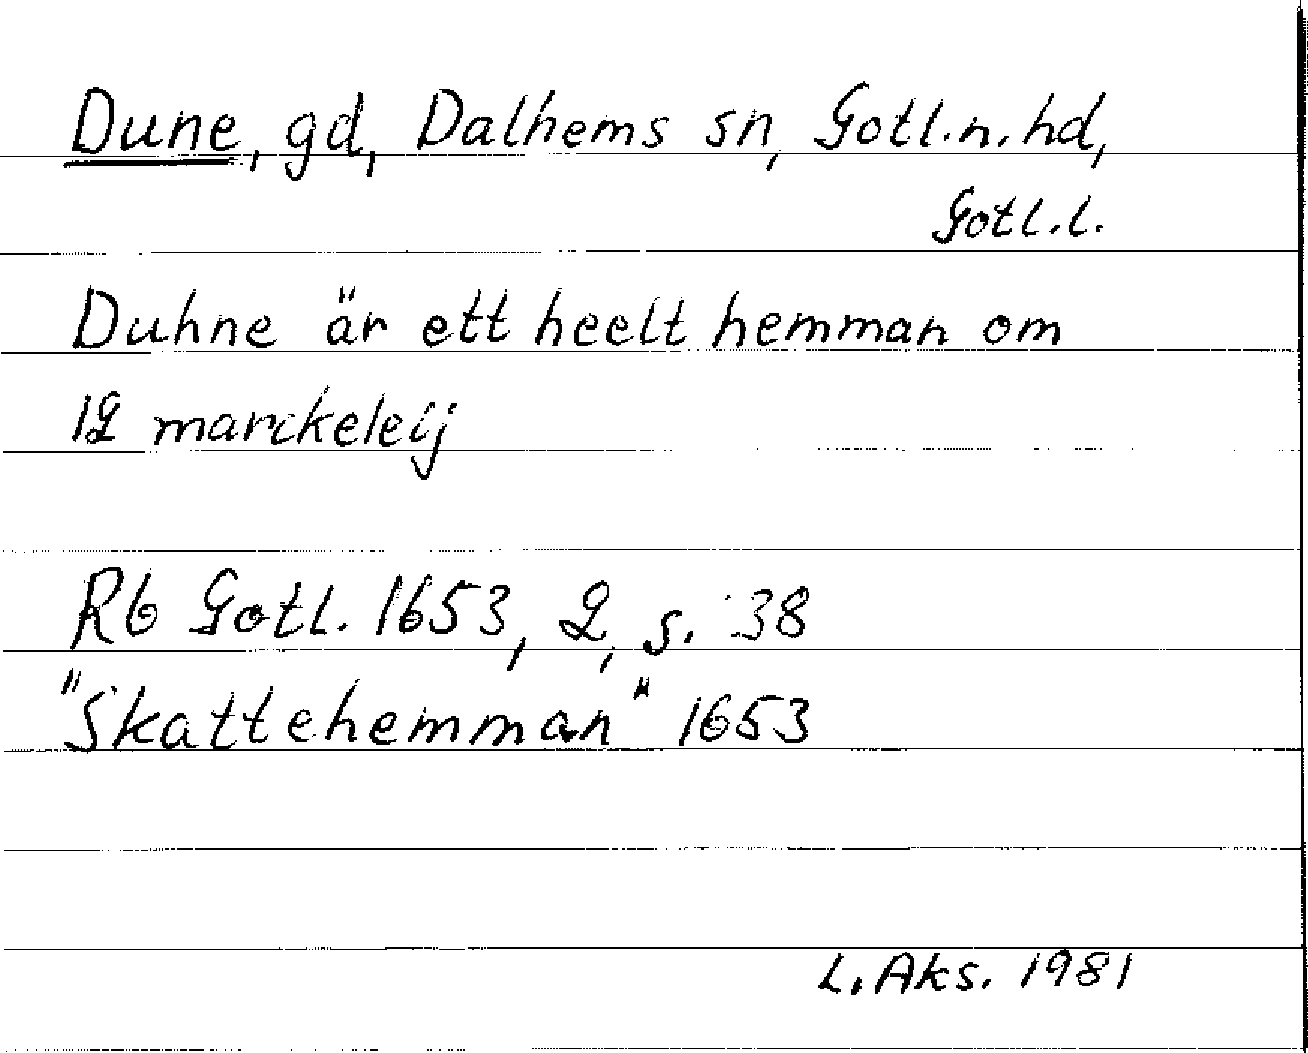 Dune, gd, Dalhems sn, Gotl.n.hd,
Gotl.l.
Duhne är ett heelt hemman om
12 marckeleij
Rb Gotl. 1653, 2, s. 38
"Skattehemman" 1653
L. Aks. 1981